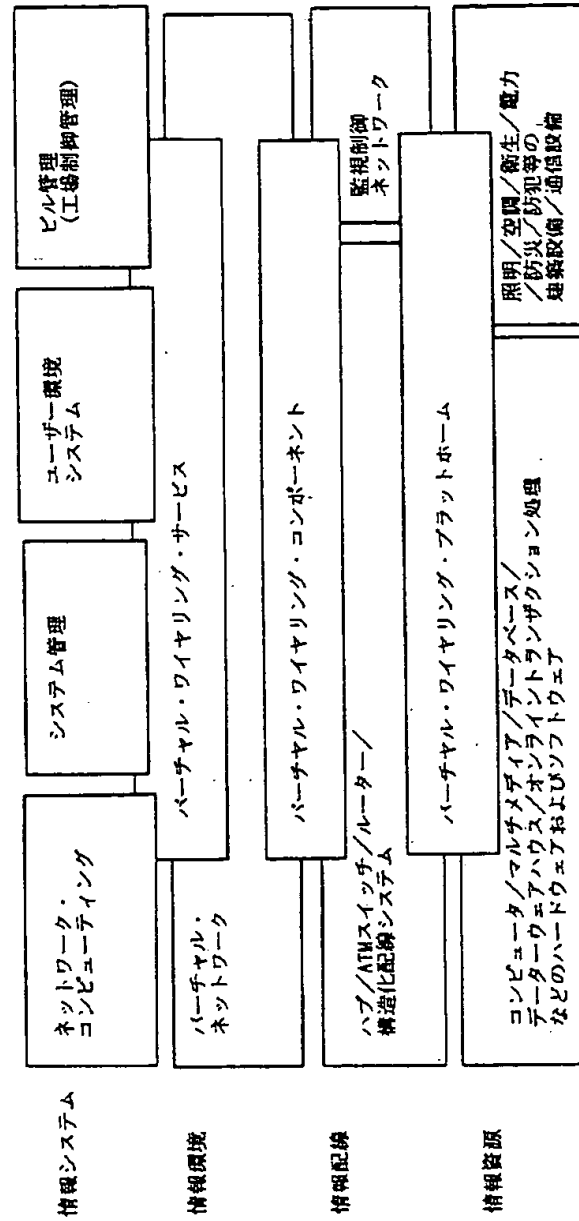 情報システム
ネットワーク・
コンピューティング
システム管理
ユーザー環境
システム
ビル管理
(工場制御管理)
情報環境
バーチャル・
ネットワーク
バーチャル・ワイヤリング・サービス
情報配線
ハブ/ATMスイッチ/ルーター/
構造化配線システム
バーチャル・ワイヤリング・コンポーネント
監視制御
ネットワーク
情報資源
コンピュータ/マルチメディア/データベース/
データーウェアハウス/オンライントランザクション処理
などのハードウェアおよびソフトウェア
バーチャル・ワイヤリング・プラットホーム
照明/空調/衛生/電力
/防災/防犯等の
建築設備/通信設備